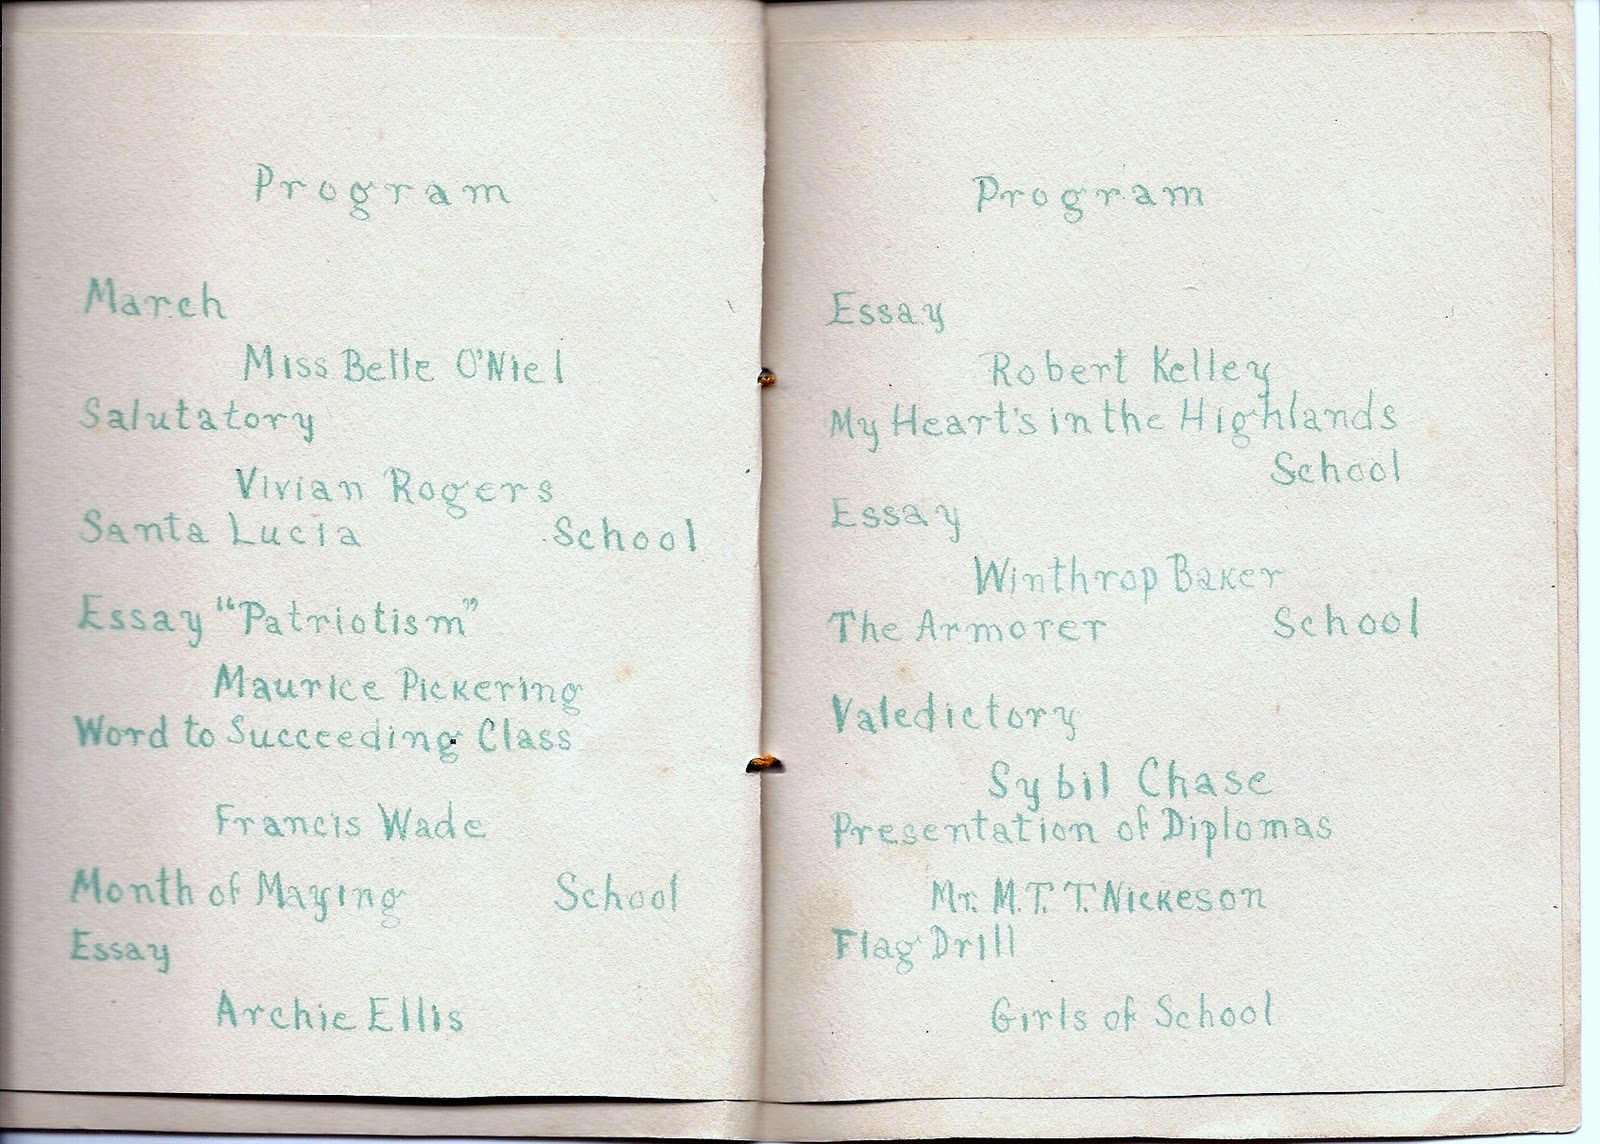 Program
March
Miss Belle O'Niel
Salutatory
Vivian Rogers
Santa Lucia School
Essay "Patriotism"
Maurice Pickering
Word to Succeeding Class
Francis Wade
Month of Maying School
Essay
Archie Ellis
Program
Essay
Robert Kelley
My Heart's in the Highlands
School
Essay
Winthrop Baker
The Armorer School
Valedictory
Sybil Chase
Presentation of Diplomas
Mr. M. T. T. Nickeson
Flag Drill
Girls of School